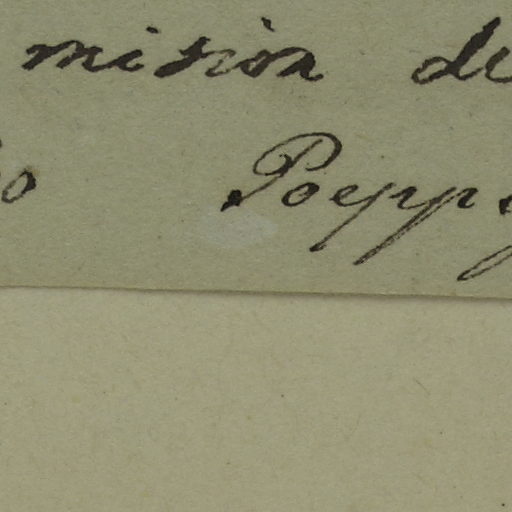 mision de
o Poepp